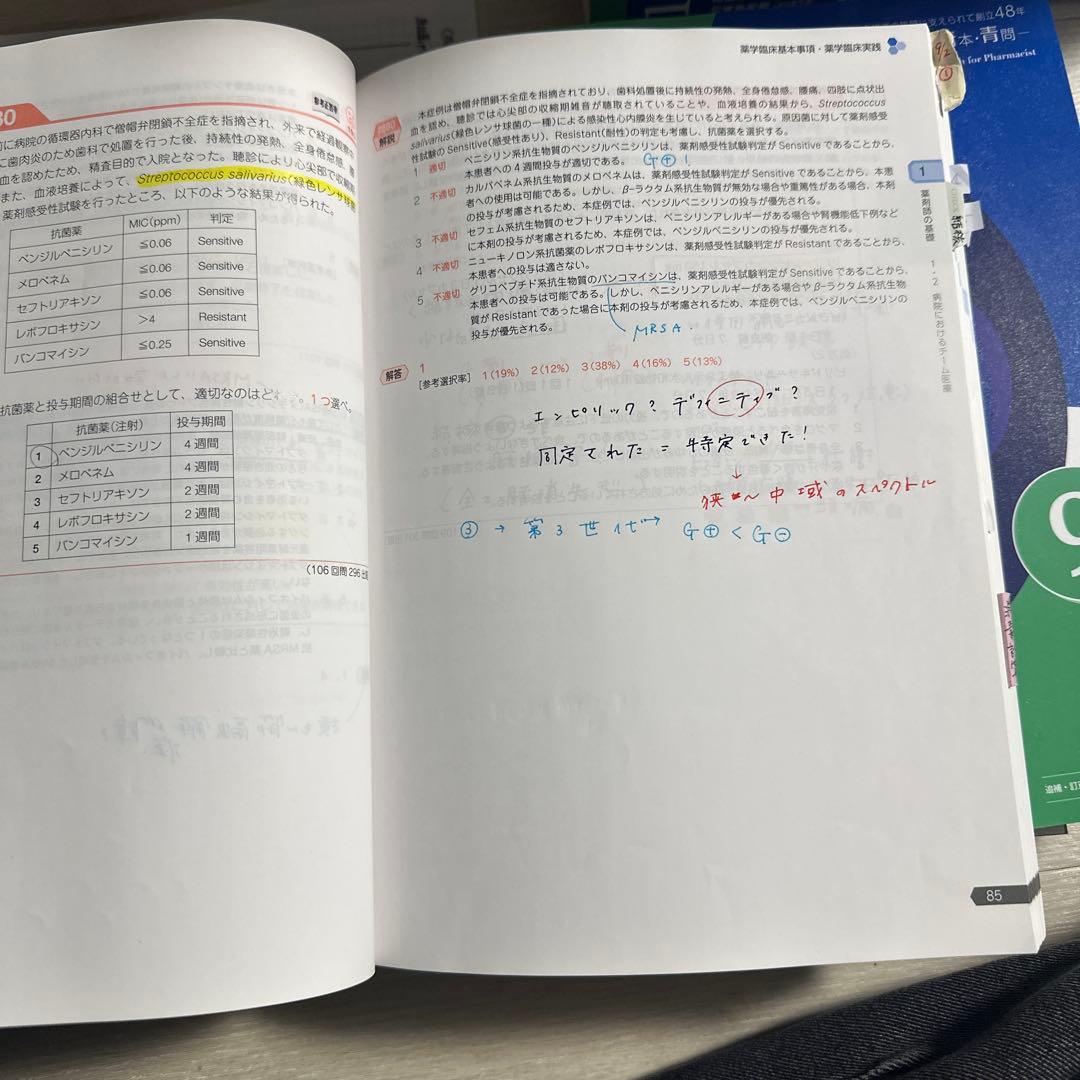 30
参考正答率
に病院の循環器内科で僧帽弁閉鎖不全症を指摘され、外来で経過観察
に歯肉炎のため歯科で処置を行った後、持続性の発熱、全身倦怠感、
血を認めたため、精査目的で入院となった。聴診により心尖部で収縮期
また、血液培養によって、Streptococcus salivarius(緑色レンサ球菌
薬剤感受性試験を行ったところ、以下のような結果が得られた。
抗菌薬 MIC(ppm) 判定
ベンジルペニシリン ≦0.06 Sensitive
メロペネム ≦0.06 Sensitive
セフトリアキソン ≦0.06 Sensitive
レボフロキサシン >4 Resistant
バンコマイシン ≦0.25 Sensitive
抗菌薬と投与期間の組合せとして、適切なのはど 。1つ選べ。
抗菌薬(注射) 投与期間
1 ベンジルペニシリン 4週間
2 メロペネム 4週間
3 セフトリアキソン 2週間
4 レボフロキサシン 2週間
5 バンコマイシン 1週間
(106回問296出
薬学臨床基本事項・薬学臨床実践
解説
本症例は僧帽弁閉鎖不全症を指摘されており、歯科処置後に持続性の発熱、全身倦怠感、腰痛、四肢に点状出
血を認め、聴診では心尖部の収縮期雑音が聴取されていることや、血液培養の結果から、Streptococcus
salivarius(緑色レンサ球菌の一種)による感染性心内膜炎を生じていると考えられる。原因菌に対して薬剤感受
性試験のSensitive(感受性あり)、Resistant(耐性)の判定も考慮し、抗菌薬を選択する。
1 適切 ペニシリン系抗生物質のベンジルペニシリンは、薬剤感受性試験判定がSensitiveであることから、
本患者への4週間投与が適切である。 G⊕!
2 不適切 カルバペネム系抗生物質のメロペネムは、薬剤感受性試験判定がSensitiveであることから、本患
者への使用は可能である。しかし、β-ラクタム系抗生物質が無効な場合や重篤性がある場合、本剤
の投与が考慮されるため、本症例では、ベンジルペニシリンの投与が優先される。
3 不適切 セフェム系抗生物質のセフトリアキソンは、ペニシリンアレルギーがある場合や腎機能低下例など
に本剤の投与が考慮されるため、本症例では、ベンジルペニシリンの投与が優先される。
4 不適切 ニューキノロン系抗菌薬のレボフロキサシンは、薬剤感受性試験判定がResistantであることから、
本患者への投与は適さない。
5 不適切 グリコペプチド系抗生物質のバンコマイシンは、薬剤感受性試験判定がSensitiveであることから、
本患者への投与は可能である。しかし、ペニシリンアレルギーがある場合やβ-ラクタム系抗生物
質がResistantであった場合に本剤の投与が考慮されるため、本症例では、ベンジルペニシリンの
投与が優先される。
MRSA.
解答 1
[参考選択率] 1(19%) 2(12%) 3(38%) 4(16%) 5(13%)
エンピリック? デフィニティブ?
同定された = 特定できた!
↓
狭い〜中域のスペクトル
③ → 第3世代→ G⊕ < G⊖
1
薬剤師の基礎
1・2 病院におけるチーム医療
85
9/2
①
支えられて創立48年
本・青問
for Pharmacist
9